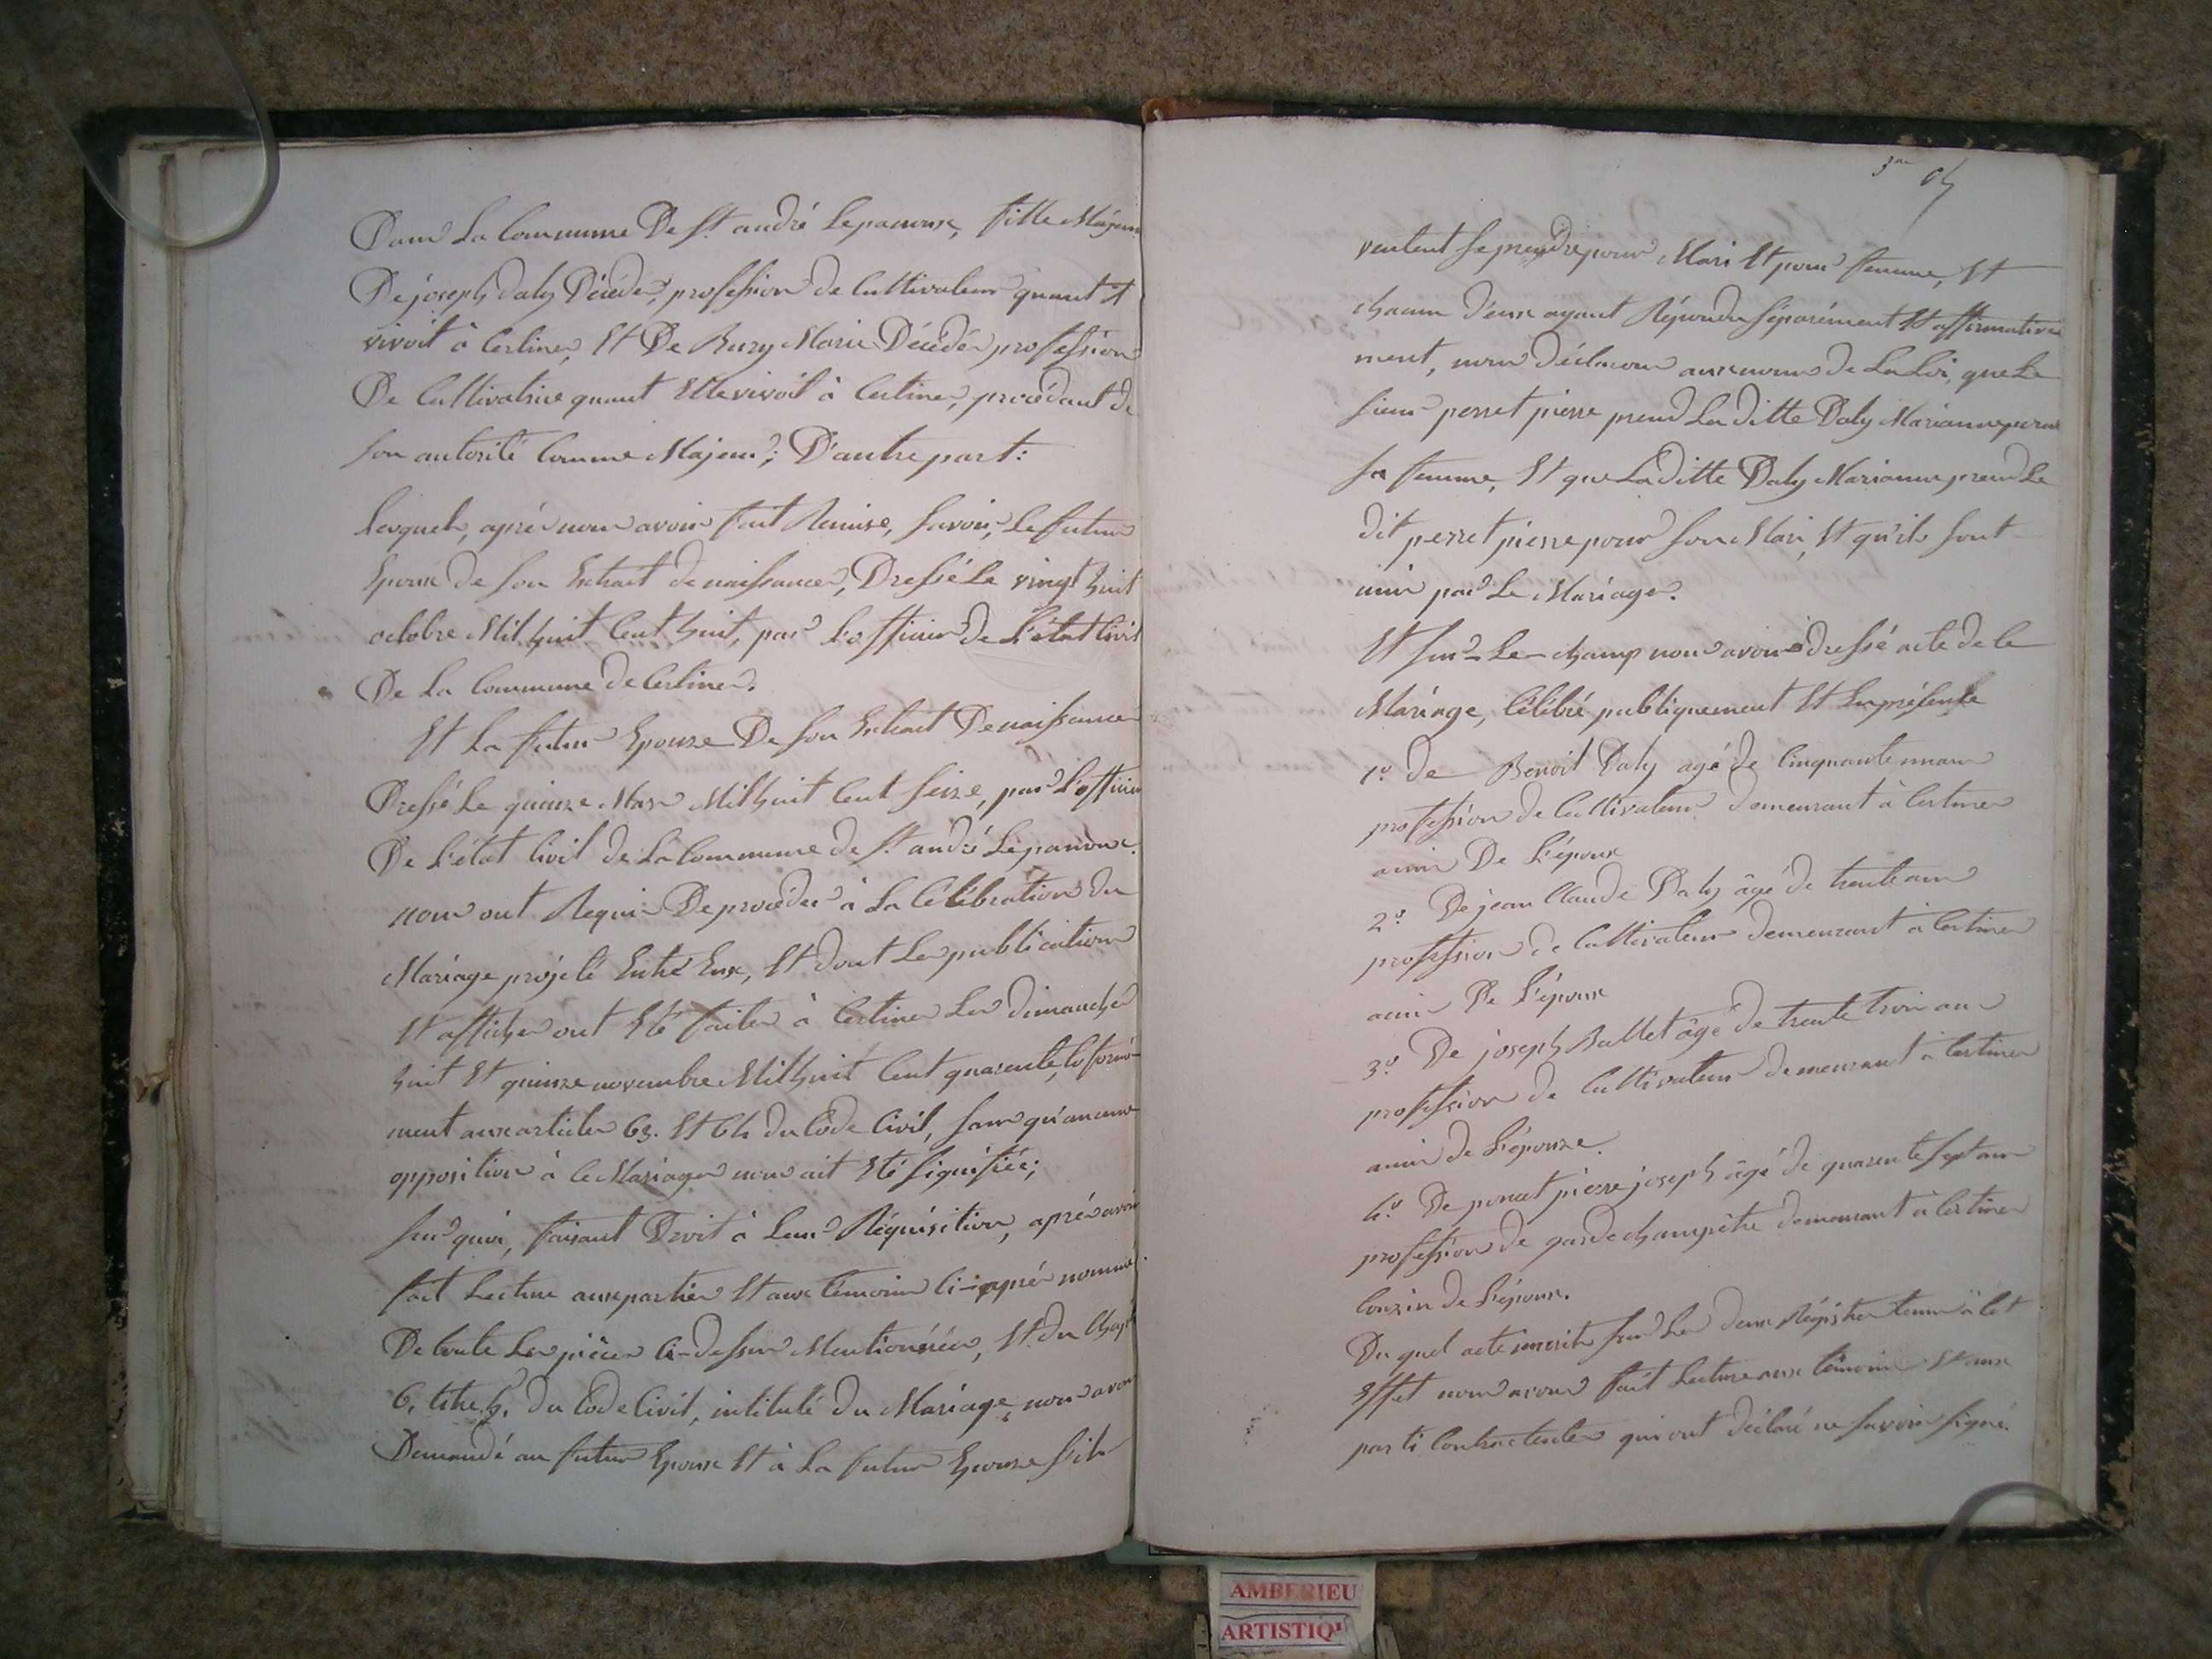 Dans La Commune De St. andré Lepanoux, fille Majeur
De joseph daly Décédé, profession de Cultivateur quant il
vivoit à Certines, Et De Buzy Marie Décédée profession
De Cultivatrice quant Elle vivoit à Certines, procédant de
son autorité Comme Majeur; D'autre part:
Lesquels, après nous avoir fait Remise, savoir, Le futur
Epoux de son Extrait de naissance, Dressé Le vingt huit
octobre Mil huit Cent huit, par L'officier de L'état Civil
De La Commune de Certines.
Et La futur Epouse De son Extrait De naissance
Dressé Le quinze Mars Mil huit Cent seize, par L'officier
De L'état Civil de La Commune de St. andré Lepanoux.
nous ont Requis De procéder à La Célébration du
Mariage projeté Entre Eux, Et dont Les publications
Et affiches ont Eté faites à Certines Les dimanches
huit Et quinze novembre Mil huit Cent quarente, Coformé-
ment aux articles 63. Et 64 du Code Civil, sans qu'aucune
opposition à Ce Mariage nous ait Eté signifiée;
sur quoi, faisant Droit à Leur Réquisition, après avoir
fait Lecture aux parties Et aux témoins Ci-après nommé.
De toute Les pièces Ci-dessus Mentionnées, Et du Chapt
6, titre 5, du Code Civil, intitulé du Mariage, nous avons
Demandé au futur Epoux Et à La futur Epouse s'ils
3me
veulent se prendre pour Mari Et pour femme, Et
chacun d'eux ayant Répondu séparément Et affirmative
ment, nous déclarons aux noms de La Loi, que Le
sieur perret pierre prend La ditte Daly Marianne pour
sa femme, Et que La ditte Daly Marianne prend Le
dit perret pierre pour son Mari, Et qu'ils sont
unis par Le Mariage.
Et sur-Le-champ nous avons dressé acte de Ce
Mariage, Célébré publiquement Et En présente
1o. de Benoit Daly agé de Cinquante un ans
profession de Cultivateur demeurant à Certines
amis De L'époux
2o. De jean Claude Daly âgé de trente ans
profession de Cultivateur demeurant à Certines
amis De L'époux
3o. De joseph Bullet âgé de trente trois ans
profession de Cultivateur demeurant à Certines
amis de L'épouze.
4o. De poncet pierre joseph âgé de quarente sept ans
profession de garde champêtre demeurant à Certines
Couzin de L'époux.
Du quel acte inscrit sur Les deux Régistres tenus à Cet
Effet nous avons fait Lecture aux témoins Et aux
parti Contractentes qui ont déclaré ne savoir signé.
AMBERIEU
ARTISTIQ